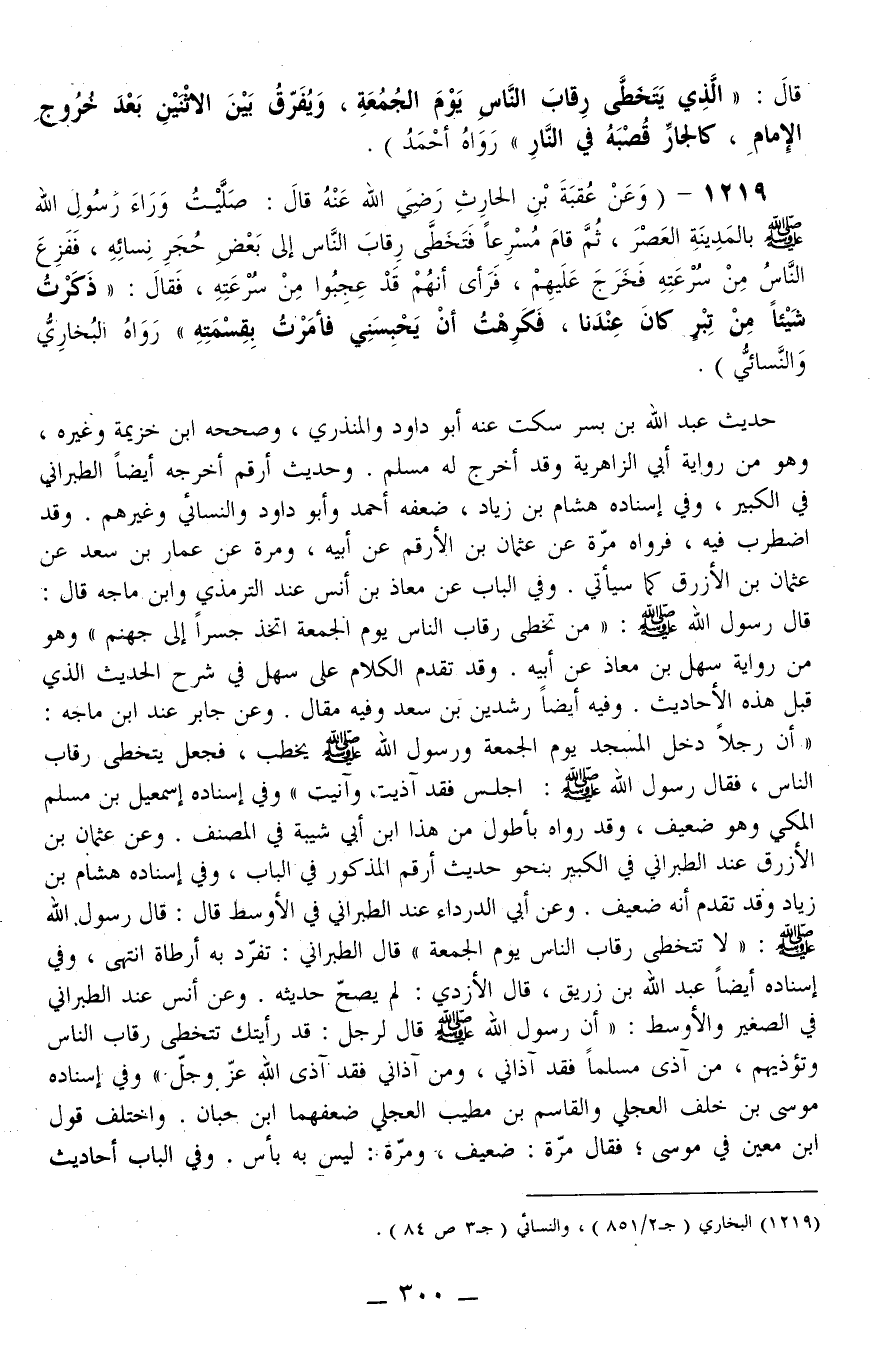 قالَ : « الَّذِي يَتَخَطَّى رِقابَ النَّاسِ يَوْمَ الجُمُعَةِ ، وَيُفَرّقُ بَيْنَ الاثْنَيْنِ بَعْدَ خُرُوجِ
الإِمامِ ، كالجارِّ قُصْبَهُ في النَّارِ » رَوَاهُ أحْمَدُ ) .
١٢١٩ - ( وَعَنْ عُقبَةَ بْنِ الحارِثِ رَضِيَ الله عَنْهُ قالَ : صَلَّيْتُ وَرَاءَ رَسُولِ الله
ﷺ بالمَدِينَةِ العَصْرَ ، ثُمَّ قامَ مُسْرِعاً فَتَخَطَّى رِقابَ النَّاس إلى بَعْضِ حُجَرِ نِسائِهِ ، فَفَزِعَ
النَّاسُ مِنْ سُرْعَتِهِ فَخَرَجَ عَلَيهِمْ ، فَرَأى أنهُمْ قَدْ عجِبُوا مِنْ سُرْعَتِهِ ، فَقالَ : « ذَكَرْتُ
شَيْئاً مِنْ تِبْرٍ كانَ عِنْدَنا ، فَكَرِهْتُ أنْ يَحْبِسَنِي فأمَرْتُ بِقِسْمَتِهِ » رَوَاهُ البُخارِيُّ
وَالنَّسائيُّ ) .
حديث عبد الله بن بسر سكت عنه أبو داود والمنذري ، وصححه ابن خزيمة وغيره ،
وهو من رواية أبي الزاهرية وقد أخرج له مسلم . وحديث أرقم أخرجه أيضاً الطبراني
في الكبير ، وفي إسناده هشام بن زياد ، ضعفه أحمد وأبو داود والنسائي وغيرهم . وقد
اضطرب فيه ، فرواه مرّة عن عثمان بن الأرقم عن أبيه ، ومرة عن عمار بن سعد عن
عثمان بن الأزرق كما سيأتي . وفي الباب عن معاذ بن أنس عند الترمذي وابن ماجه قال :
قال رسول الله ﷺ : « من تخطى رقاب الناس يوم الجمعة اتخذ جسراً إلى جهنم » وهو
من رواية سهل بن معاذ عن أبيه . وقد تقدم الكلام على سهل في شرح الحديث الذي
قبل هذه الأحاديث . وفيه أيضاً رشدين بن سعد وفيه مقال . وعن جابر عند ابن ماجه :
« أن رجلاً دخل المسجد يوم الجمعة ورسول الله ﷺ يخطب ، فجعل يتخطى رقاب
الناس ، فقال رسول الله ﷺ : اجلس فقد آذيت وآنيت » وفي إسناده إسمعيل بن مسلم
المكي وهو ضعيف ، وقد رواه بأطول من هذا ابن أبي شيبة في المصنف . وعن عثمان بن
الأزرق عند الطبراني في الكبير بنحو حديث أرقم المذكور في الباب ، وفي إسناده هشام بن
زياد وقد تقدم أنه ضعيف . وعن أبي الدرداء عند الطبراني في الأوسط قال : قال رسول الله
ﷺ : « لا تتخطى رقاب الناس يوم الجمعة » قال الطبراني : تفرّد به أرطاة انتهى ، وفي
إسناده أيضاً عبد الله بن زريق ، قال الأزدي : لم يصحّ حديثه . وعن أنس عند الطبراني
في الصغير والأوسط : « أن رسول الله ﷺ قال لرجل : قد رأيتك تتخطى رقاب الناس
وتؤذيهم ، من آذى مسلماً فقد آذاني ، ومن آذاني فقد آذى الله عزّ وجلّ » وفي إسناده
موسى بن خلف العجلي والقاسم بن مطيب العجلي ضعفهما ابن حبان . واختلف قول
ابن معين في موسى ؛ فقال مرّة : ضعيف ، ومرّة : ليس به بأس . وفي الباب أحاديث
(١٢١٩) البخاري ( جـ٢/ ٨٥١ ) ، والنسائي ( جـ٣ ص ٨٤ ) .
— ٣٠٠ —